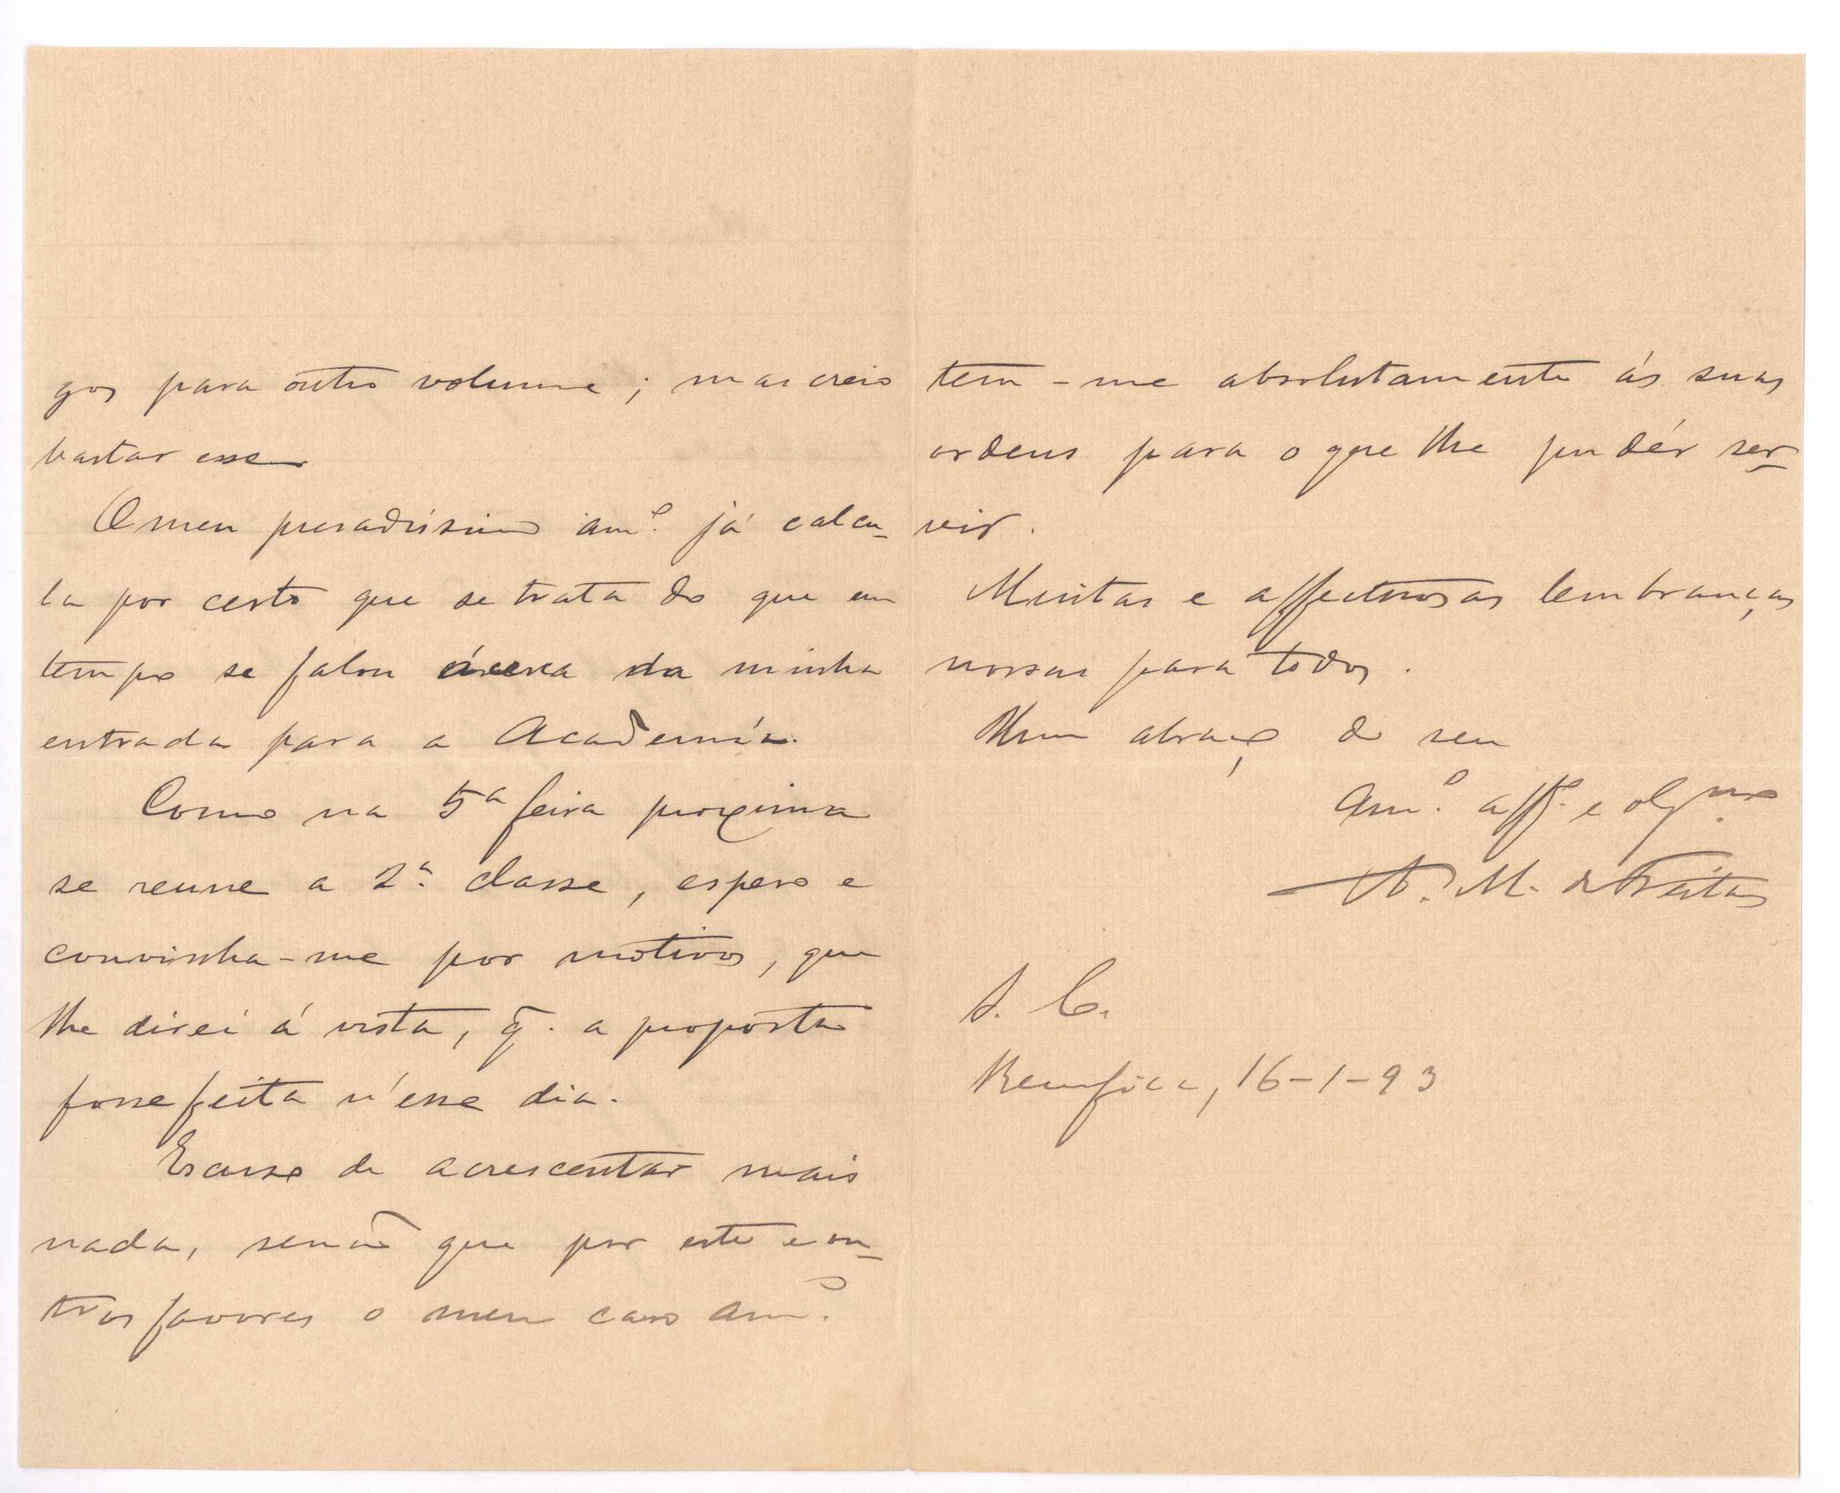 gos para outro volume; mas creio
bastar esse
O meu presadissimo am.º já calcu-
la por certo que se trata do que em
tempo se falou ácerca da minha
entrada para a Academia.
Como na 5ª feira proxima
se reune a 2.ª classe, espero e
convinha-me por motivos, que
lhe direi á vista, q̃. a proposta
fosse feita n'esse dia.
Escuso de acrescentar mais
nada, senão que por este e ou-
tros favores o meu caro am.º
tem-me absolutamente ás suas
ordens para o que lhe pudér ser-
vir.
Muitas e affectuosas lembranças
nossas para todos.
Um abraço do seu
Am.º aff.º e obg.mo
M. de Freitas
S. C.
Bemfica, 16-1-93